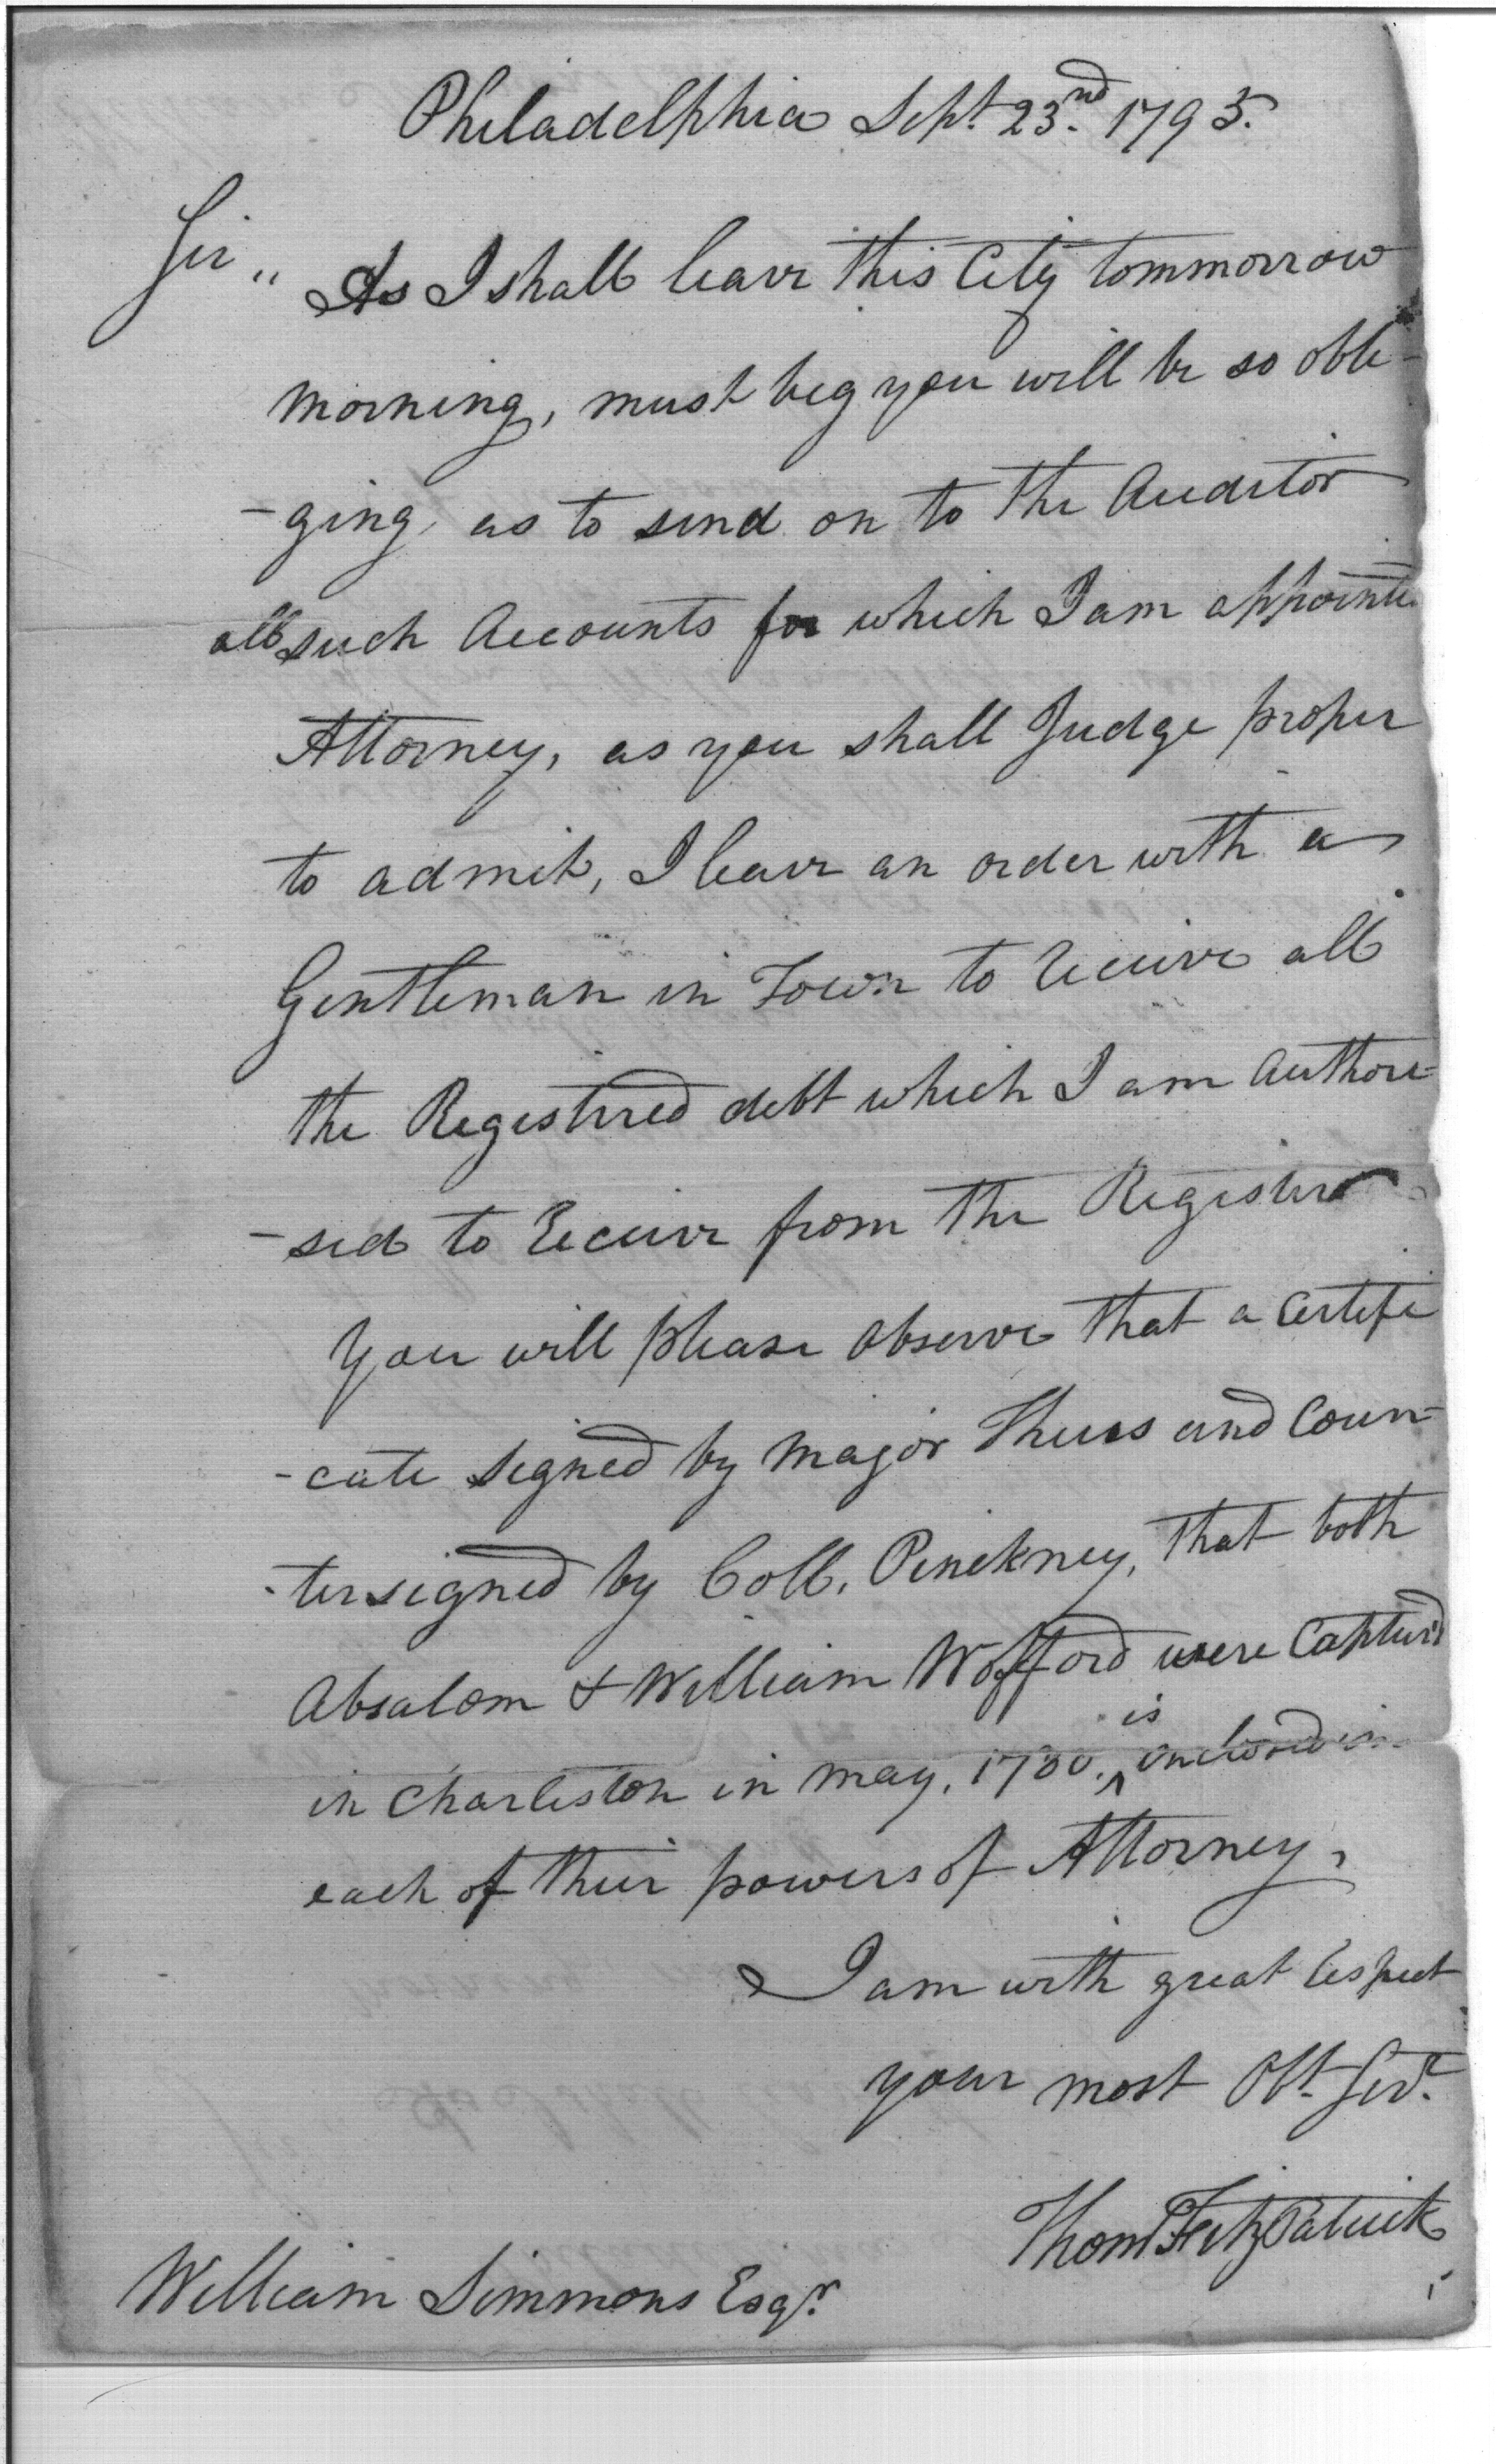 Philadelphia Sept. 23nd. 1795.
Sir,, As I shall leave this City tommorrow
morning, must beg you will be so obli-
-ging, as to send on to the Auditor
all such Accounts for which I am appointed
Attorney, as you shall Judge proper
to admit, I leave an order with a
Gentleman in Town to receive all
the Registired debt which I am Authori-
-sed to receive from the Register
You will please observe that a Certifi
-cate signed by Major Theus and Coun-
-tersigned by Coll. Pinckney, that both
Absalom & William Wofford were Captur'd
is
in Charleston in may, 1780. ^ inclosed in
each of their powers of Attorney,
I am with great respect
your most Obt. Servt.
Thoms FitzPatrick
William Simmons Esqr.